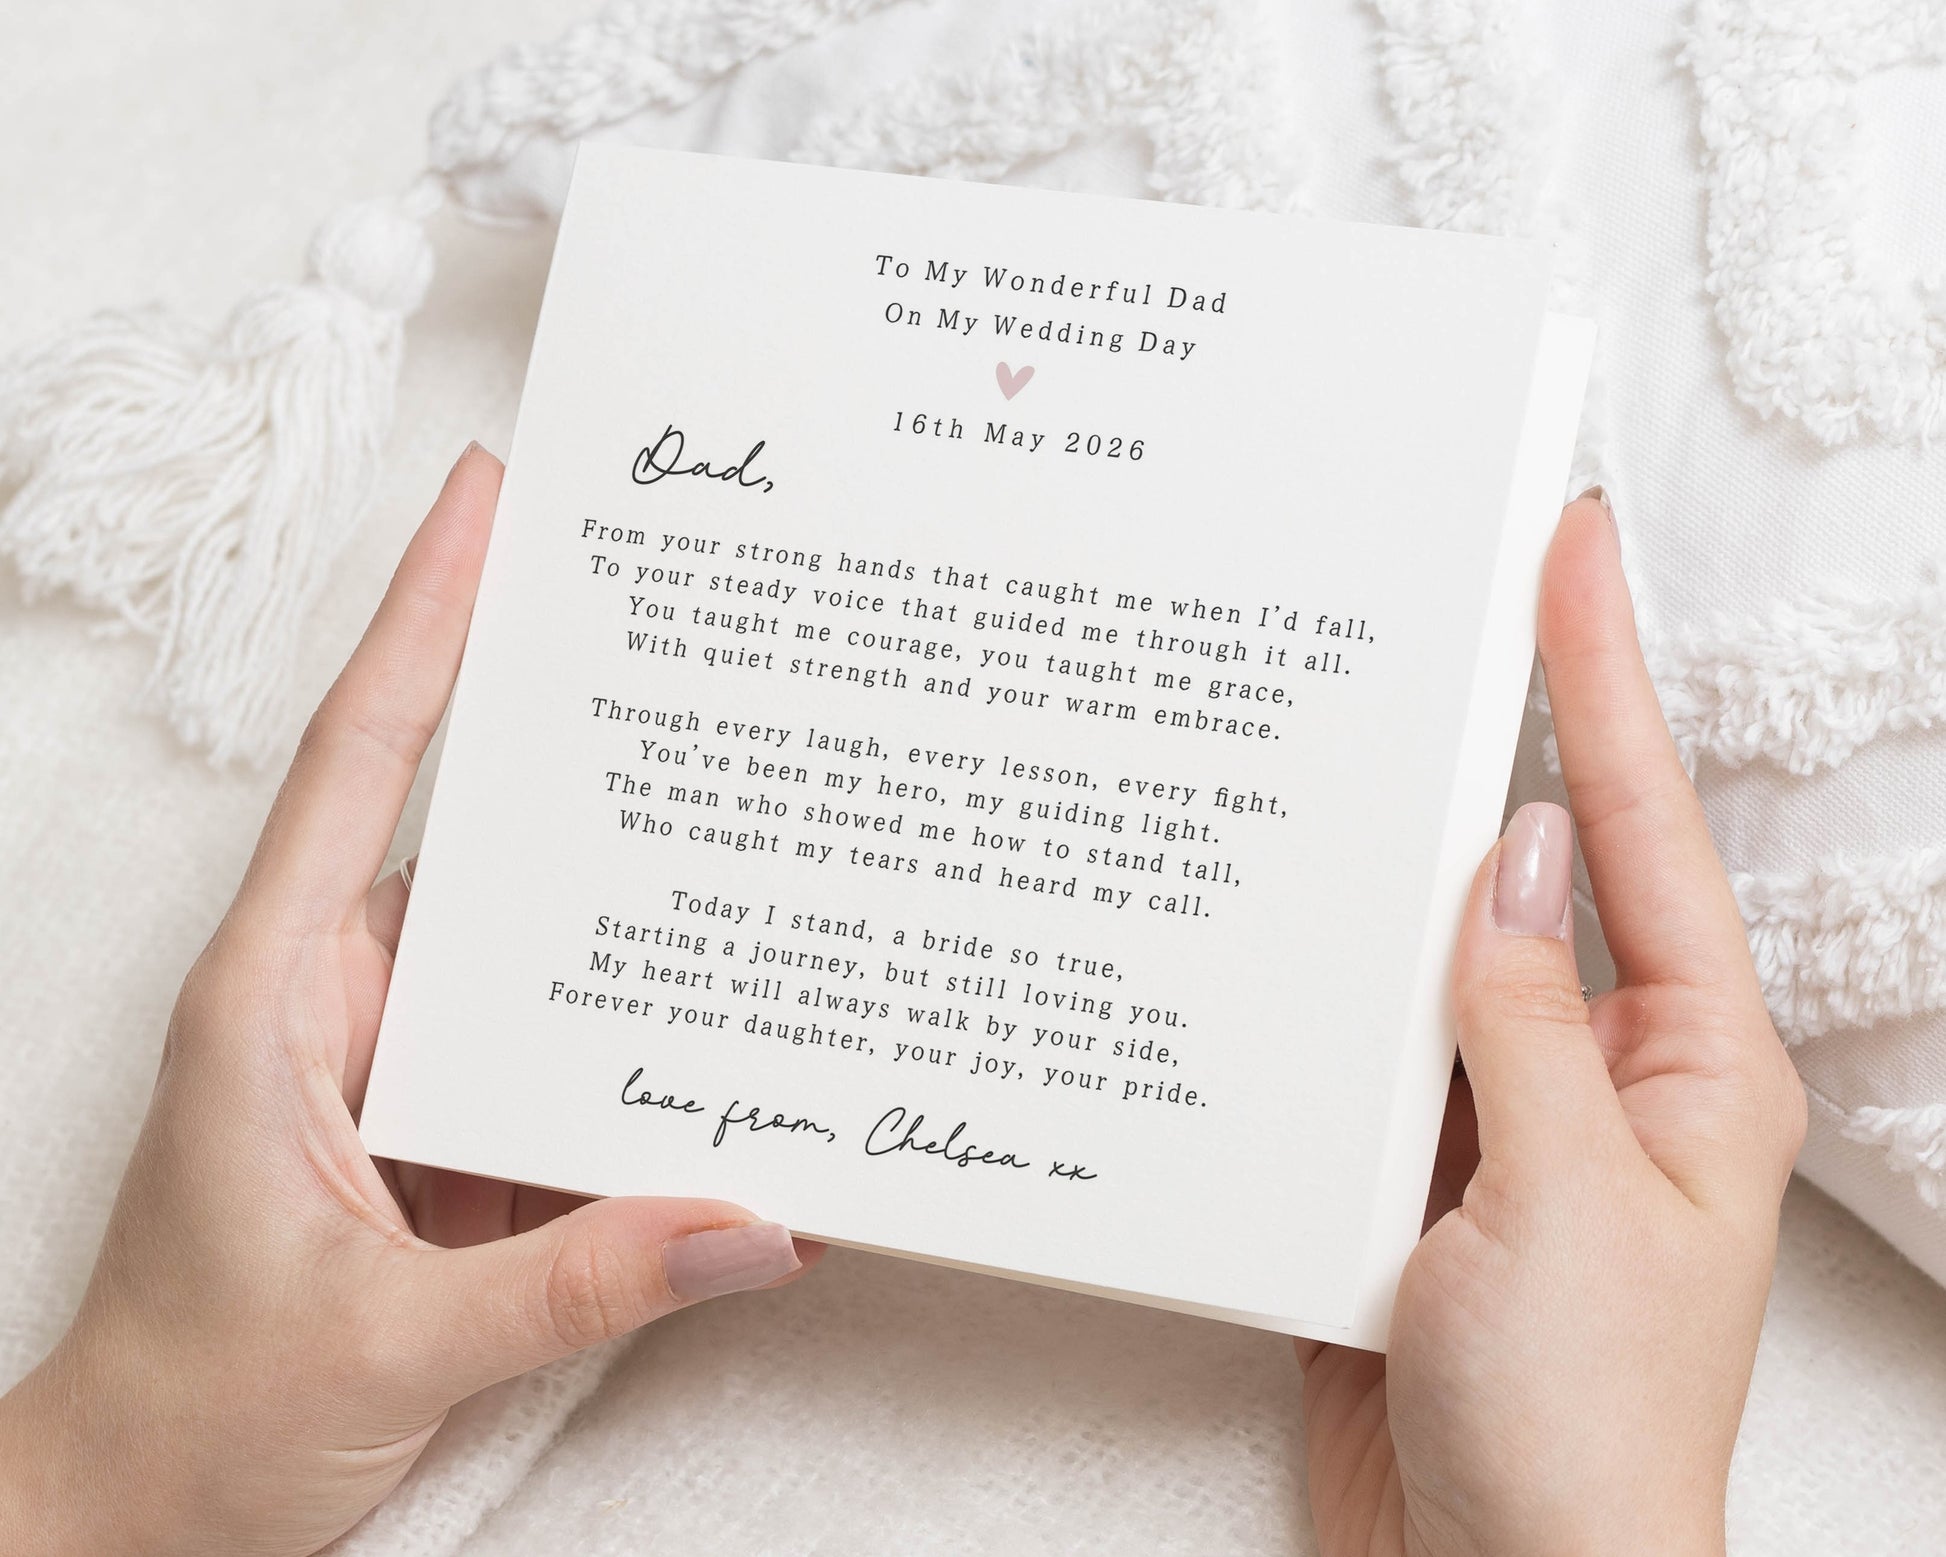 To My Wonderful Dad
On My Wedding Day
16th May 2026
Dad,
From your strong hands that caught me when I’d fall,
To your steady voice that guided me through it all.
You taught me courage, you taught me grace,
With quiet strength and your warm embrace.
Through every laugh, every lesson, every fight,
You’ve been my hero, my guiding light.
The man who showed me how to stand tall,
Who caught my tears and heard my call.
Today I stand, a bride so true,
Starting a journey, but still loving you.
My heart will always walk by your side,
Forever your daughter, your joy, your pride.
love from, Chelsea xx